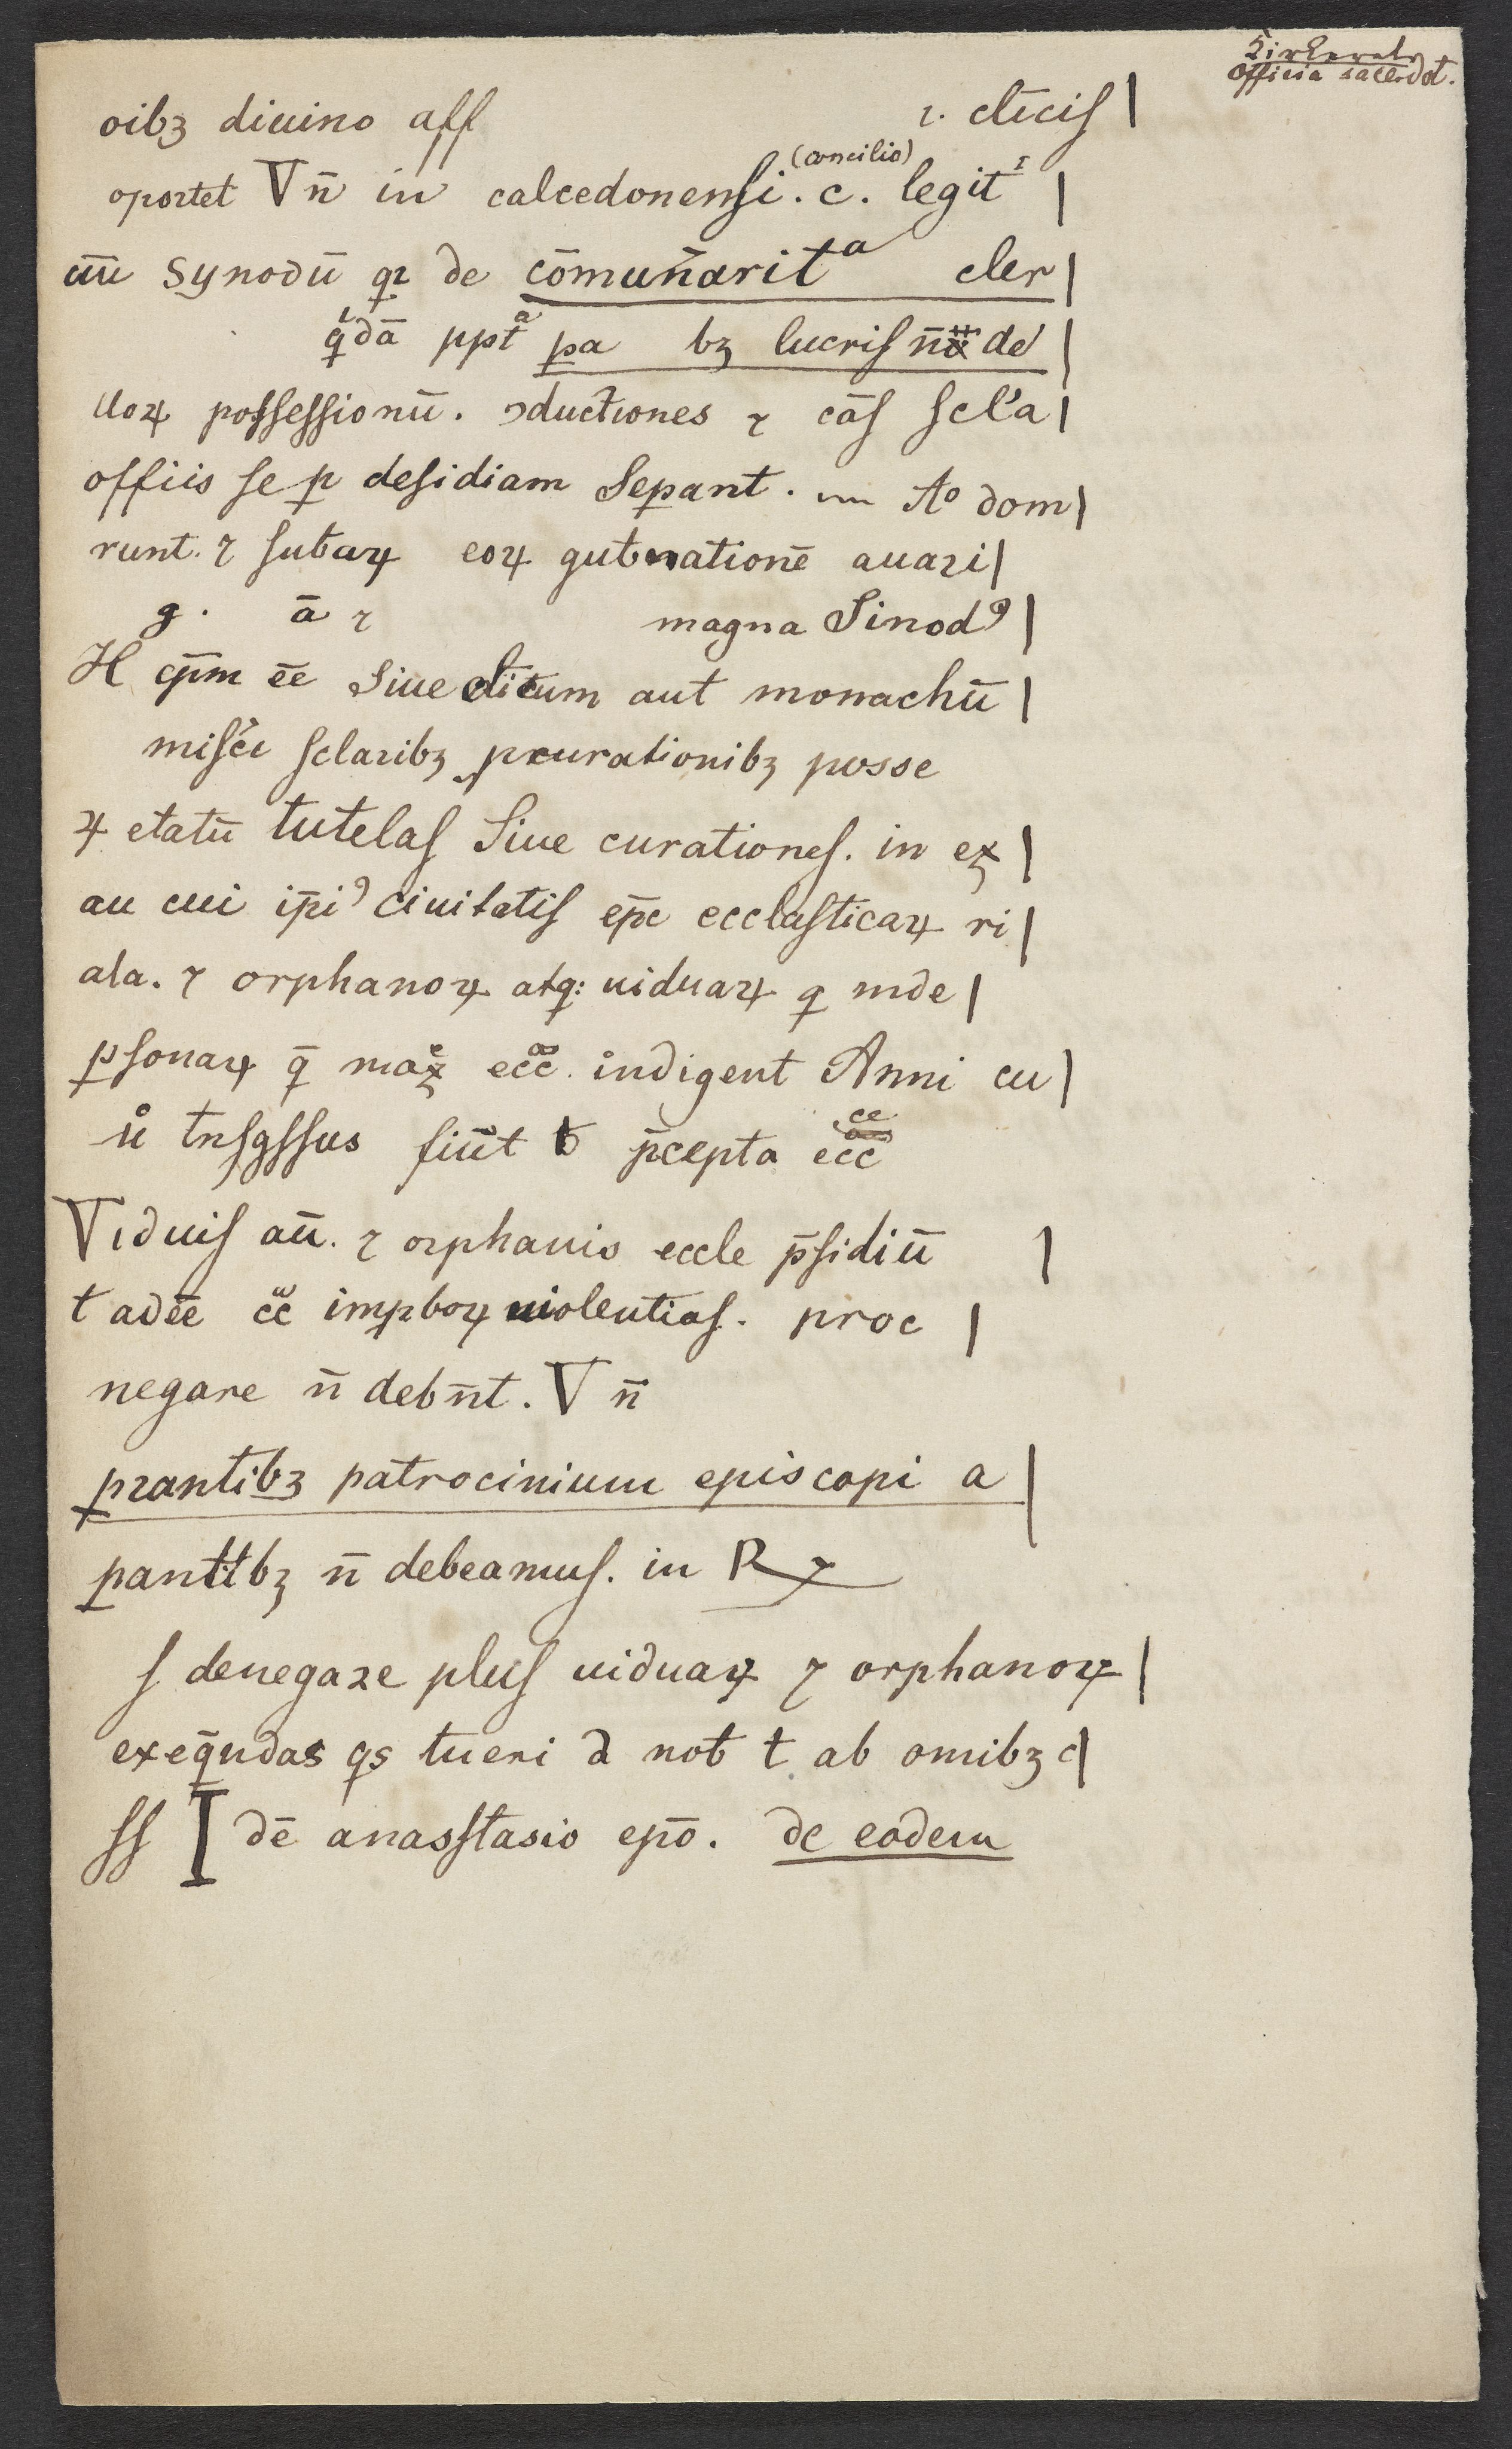 Kirkerets
Officia sacerdot.
oibꝫ diuino aff ꝛ. cl̄icis |
oportet Vn̄ in calcedonensi . c. (concilio) legit²|
cūū Synodū qꝛ de cōmun̄aritᵃ cler|
qͥdā pptᵃ ꝑa bꝫ lucris nū de|
uoꝝ possessionū. ꝯductiones ⁊ cās scl'a|
offiis se ꝑ desidiam Seꝑant. Aº dom|
runt. ⁊ subaꝝ eoꝝ gub̄nationē auaꝛi|
g. ā ⁊ magna Sinodꝰ|
H cp̄m ēē Siue cl̄icum aut monachū|
miscʼi sclaribꝫ ꝓcurationibꝫ posse
ꝝ etatū tutelas Siue curationes. in ex|
au cui ip̄iꝰ ciuitatis ep̄c ecclasticaꝝ ri|
ala. ⁊ orphanoꝝ atq: uiduaꝝ q inde|
ꝑsonaꝝ q̄ max ecc̄. indigent Anni cu|
ů tn̄sgssus fiūt ƀ p̄cepta ecc̄ ce
Viduis aū. ⁊ oꝛphanis eccle p̄sidiū |
t adēē cc̄ impboꝝ uiolentias. proc |
negare n̄ debn̄t. V n̄
ꝑꝛantibꝫ patrocinium episcopi a|
ꝑanttbꝫ n̄ debeamus. in R⁊
s denegaꝛe plus uiduaꝝ ⁊ orphanoꝝ|
exeq̄ndas qs tueri ꝺ nob̄ t ab omibꝫ c|
ss I dē anasstasio ep̄o. de eodem